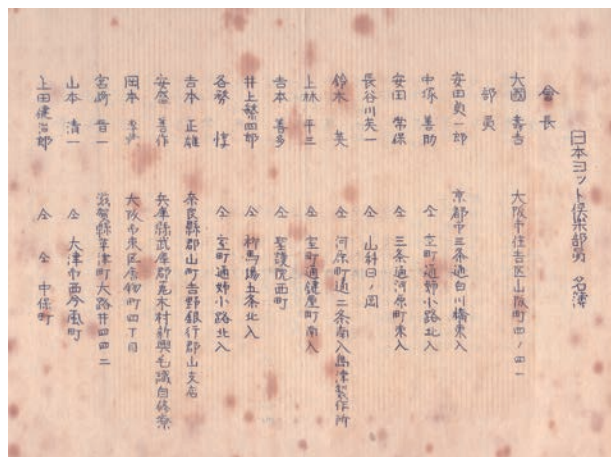 日本ヨット倶楽部員 名簿
會長
大國壽吉 大阪市住吉区山阪町四ノ四一
部員
安田貞一郎 京都市三条通白川橋東入
中塚善助 仝 室町通姉小路北入
安田常保 仝 三条通河原町東入
長谷川英一 仝 山科日ノ岡
鈴木英 仝 河原町通二条南入島津製作所
上林平三 仝 室町通鍵屋町南入
吉本善多 仝 聖護院西町
井上繁四郎 仝 柳馬場五条北入
各務惇 仝 室町通姉小路北入
吉本正雄 奈良縣郡山町吉野銀行郡山支店
安盛善作 兵庫縣武庫郡瓦木村新興毛織自修寮
岡本 大阪市東区唐物町四丁目
宮崎晋一 滋賀縣草津町大路井四四二
山本清一 仝 大津市西今颪町
上田健治郎 仝 仝 中保町